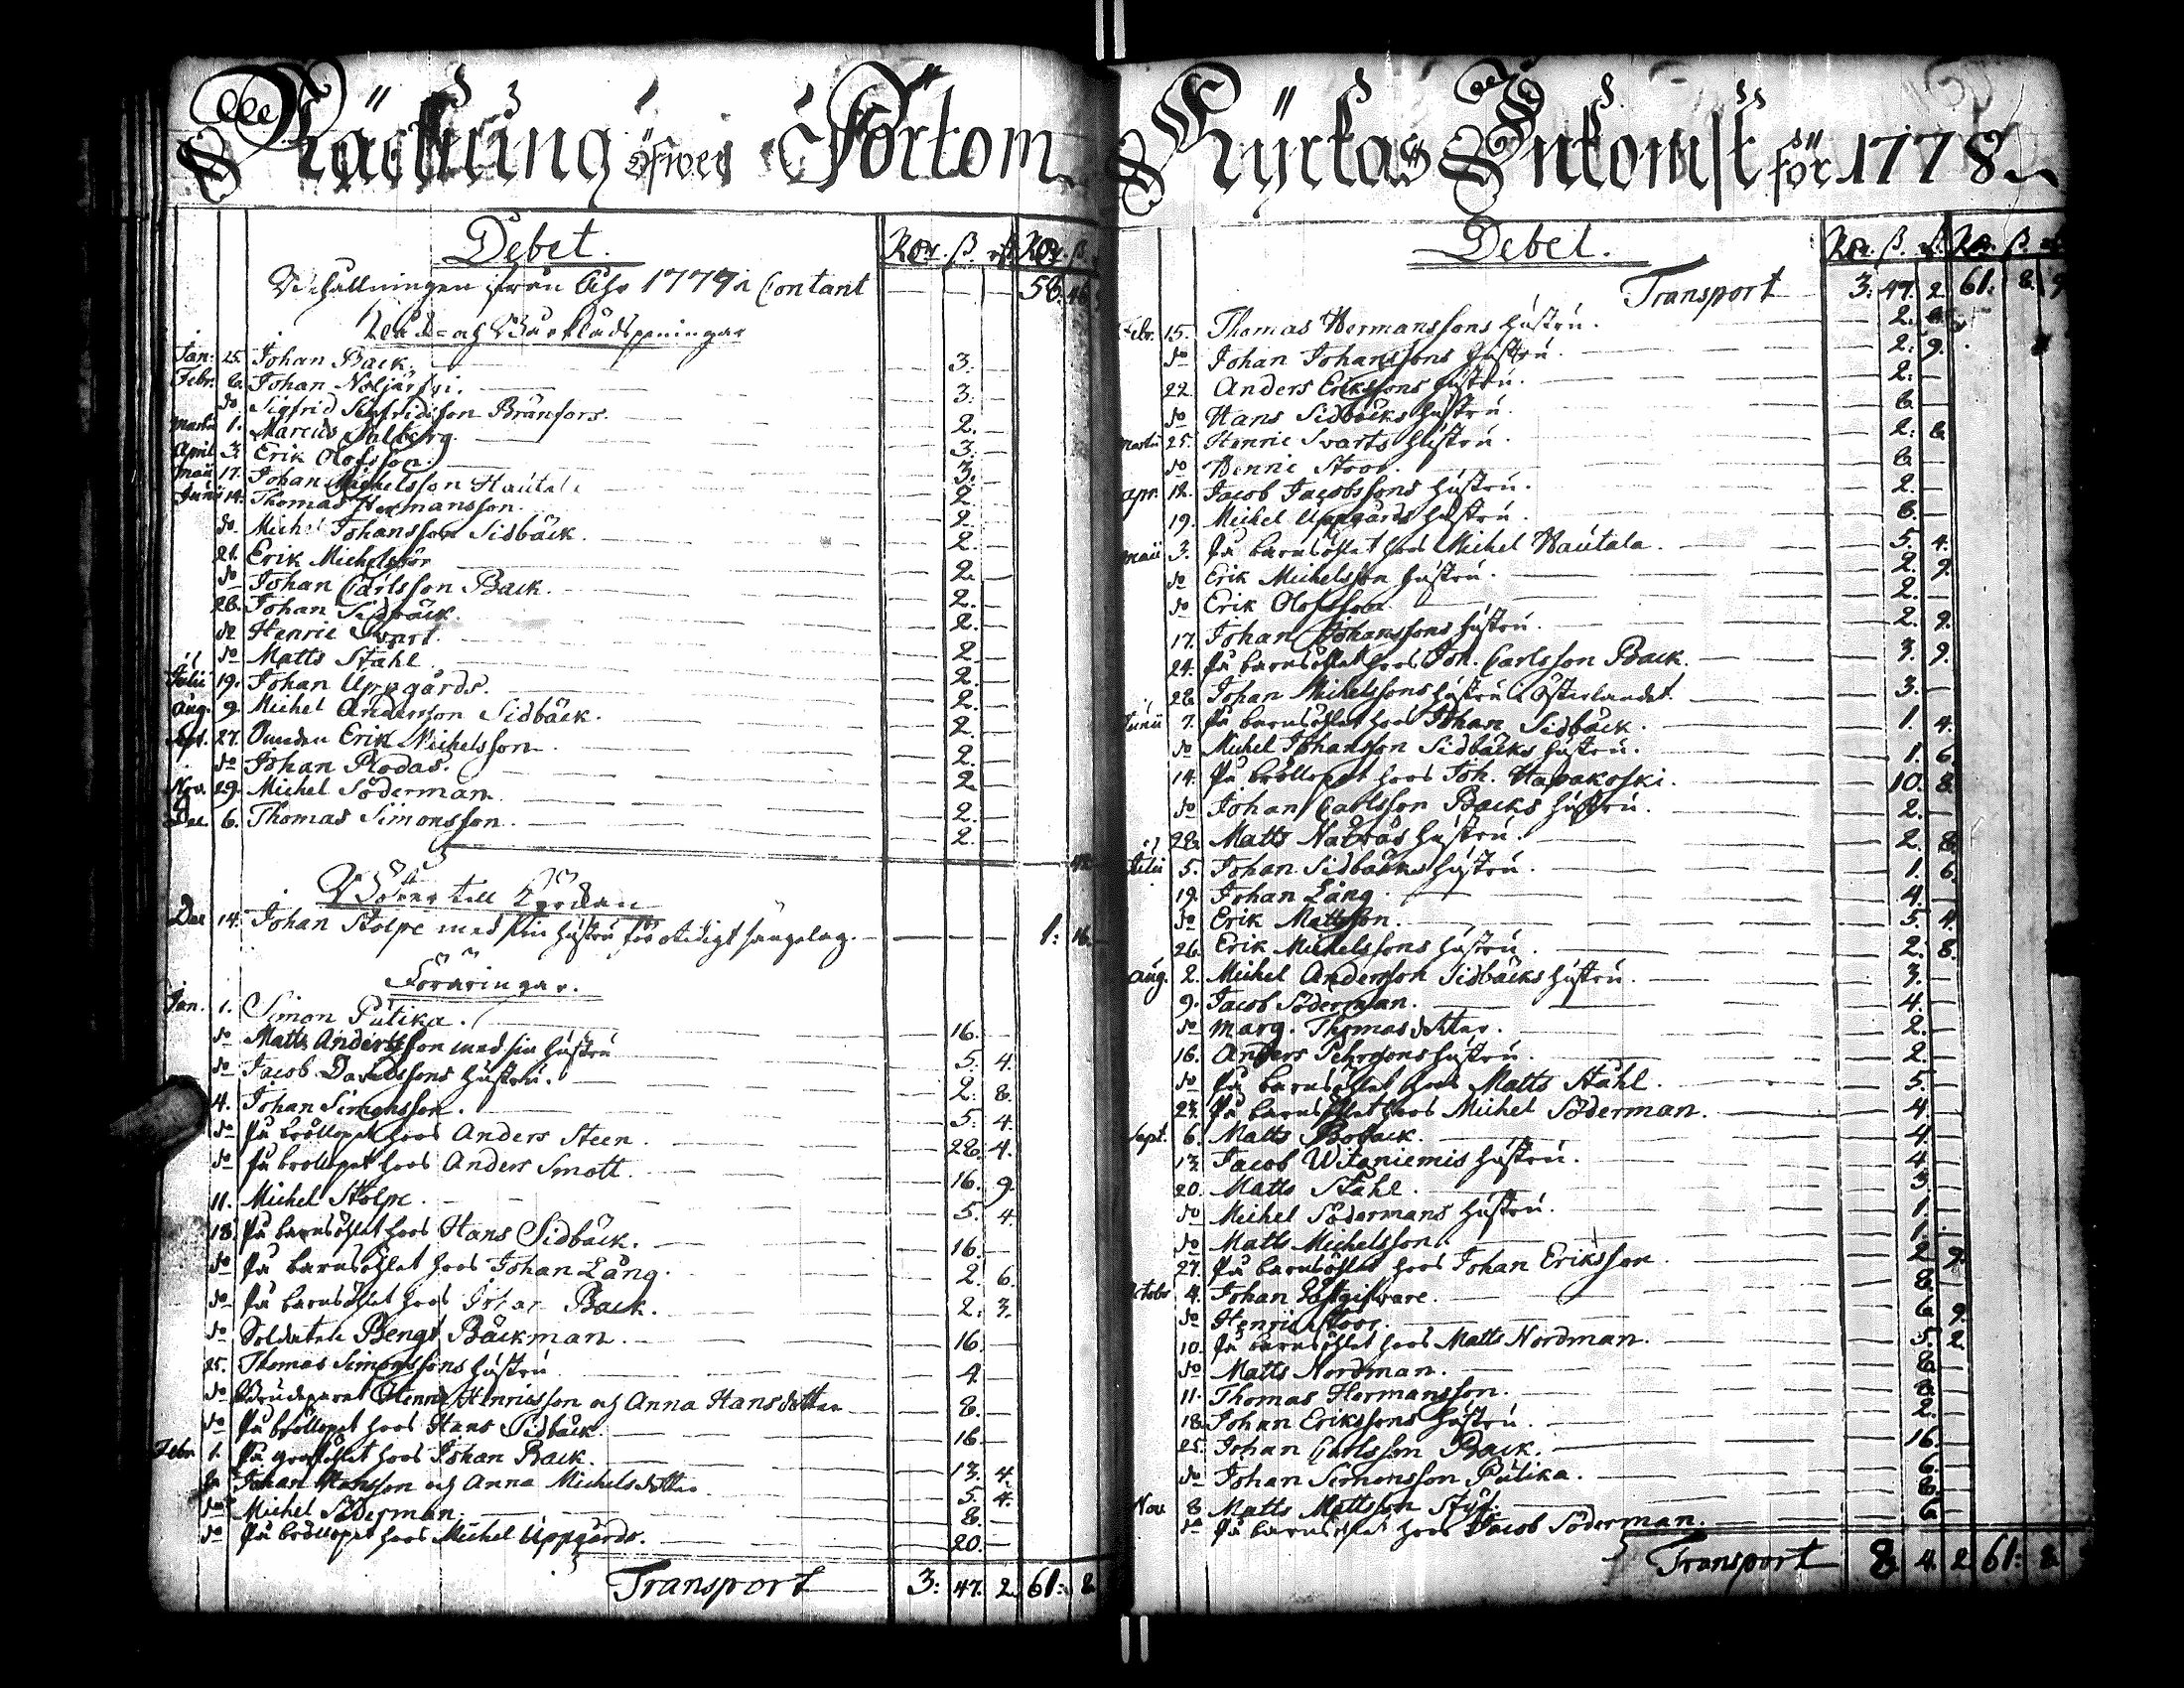 Räckning öfwer Pörtom
Debet. Rdr. ß. rst. Rdr. ß.
Behållningen ifrån Åhr 1777 i Contant — — — 56. 46.
och Bårklädspeningar
Jan. 25. Johan Back. — 3. —
Febr. 6. Johan — 3. —
do Sigfrid Sigfridsson Bränfors. — 2. —
Martii 1. Marcus Salberg. — 3. —
April 3. Erik Olofsson. — 3. —
Maii 17. Johan Michelsson Hautala — 2. —
Junii 14. Thomas Hermansson. — 2. —
do Michel Johansson Sidbäck. — 2. —
21. Erik Michelsson — 2. —
do Johan Carlsson Back. — 2. —
28. Johan Sidbäck. — 2. —
do Henric Svart. — 2. —
do Matts Ståhl. — 2. —
Julii 19. Johan Uppgårds. — 2. —
Aug. 9. Michel Andersson Sidbäck. — 2. —
Sept. 27. Erik Michelsson — 2. —
do Johan Plodas. — 2. —
Nov. 29. Michel Söderman — 2. —
Dec. 6. Thomas Simonsson. — 2. —
Böter till Kyrckan
Dec. 14. Johan Stolpe med sin hustru för otidigt sängelag. — — — 1: 16.
Föräringar.
Jan. 1. Simon Putika. — 16. —
do Matts Andersson med sin hustru — 5. 4.
do Jacob Danielssons hustru. — 2. 8.
4. Johan Simonsson. — 5. 4.
do På bröllopet hoos Anders Steen. — 28. 4.
do På bröllopet hoos Anders Smått. — 16. 9.
11. Michel Stolpe. — 5. 4.
18. På barnsöhlet hoos Hans Sidbäck. — 16. —
do På barnsöhlet hoos Johan Lång. — 2. 6.
do På barnsöhlet hoos Johan Back. — 2. 3.
do Soldaten Bengt Bäckman. — 16. —
25. Thomas Simonssons hustru — 4. —
do Brudeparet Henric Henricsson och Anna Hansdotter — 8. —
do På bröllopet hoos Hans Sidbäck. — 16. —
Febr. 1. På graföhlet hoos Johan Back. — 13. 4.
do Johan Hansson och Anna Michelsdotter — 5. 4.
do Michel Söderman. — 8. —
do På bröllopet hoos Michel Uppgårds. — 20. —
Transport 3: 47. 2. 61: 8.
Kyrkas Inkomst för 1778.
Debet. Rdr. ß. rst. Rdr. ß.
Transport 3: 47. 2. 61: 8. 9
Febr. 15. Thomas Hermanssons hustru. — 2.
do Johan Johanssons hustru. — 2. 9.
22. Anders Erikssons hustru. — 2. —
do Hans Sidbäcks hustru. — 8. —
Martii 25. Henric Svarts hustru. — 2. 8.
do Henric Stoor. — 8. —
Apr. 12. Jacob Jacobssons hustru. — 2. —
19. Michel Uppgårds hustru. — 8. —
Maii 3. På barnsöhlet hoos Michel Hautala. — 5. 4.
do Erik Michelsson hustru. — 2. 9.
do Erik Olofsson. — 2. —
17. Johan Johanssons hustru. — 2. 9.
24. På barnsöhlet hoos Joh. Carlsson Back. — 3. 9.
28. Johan Michelssons hustru i Österlandet. — 3. —
Junii 7. På barnsöhlet hoos Johan Sidbäck. — 1. 4.
do Michel Johansson Sidbäcks hustru. — 1. 6.
14. På bröllopet hoos Joh. Hapakoski. — 10. 8.
do Johan Carlsson Backs hustru. — 2. —
28. Matts hustru. — 2. 8.
Julii 5. Johan Sidbäcks hustru. — 1. 6.
19. Johan Lång. — 4. —
do Erik Mattsson. — 5. 4.
26. Erik Michelssons hustru. — 2. 8.
Aug. 2. Michel Andersson Sidbäcks hustru. — 3. —
9. Jacob Söderman. — 4. —
do Marg. Thomasdotter. — 2. —
16. Anders Pehrssons hustru. — 2. —
do På barnsöhlet hoos Matts Ståhl. — 5. —
23. På barnsöhlet hoos Michel Söderman. — 4. —
Sept. 6. Matts Boback. — 4. —
13. Jacob Witaniemis hustru. — 4. —
20. Matts Ståhl. — 3. —
do Michel Södermans hustru. — 1. —
do Matts Michelsson. — 1. —
27. På barnsöhlet hoos Johan Eriksson — 2. 9.
Octobr. 4. Johan Gästgifware. — 8. —
do Henric Stoor. — 6. 9.
10. På barnsöhlet hoos Matts Nordman. — 5. 2.
do Matts Nordman. — 8. —
11. Thomas Hermansson. — 8. —
18. Johan Erikssons hustru. — 2. —
25. Johan Carlsson Back. — 16. —
do Johan Simonsson Putika. — 6. —
Nov. 8. Matts Mattsson Styf. — 8. —
do På barnsöhlet hoos Jacob Söderman. — 6. —
Transport 8. 4. 2. 61: 8.